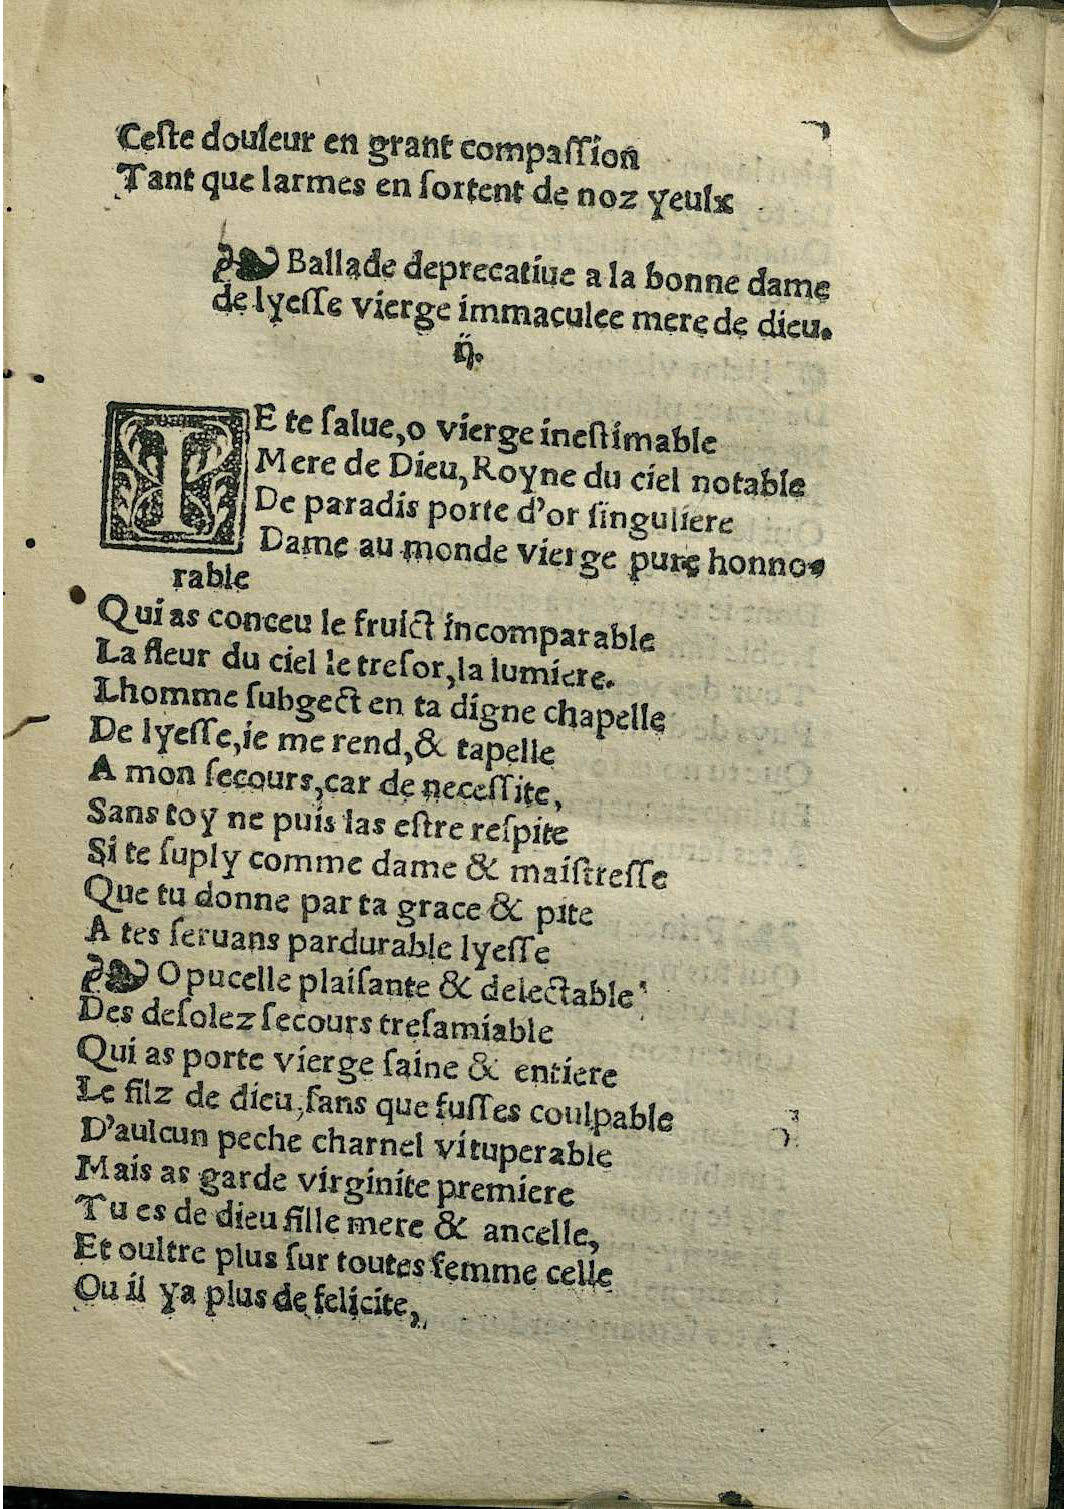 Ceſte douleur en grant compaſſion
Tant que larmes en ſortent de noz yeulx
❧ Ballade deprecatiue a la bonne dame
de lyeſſe vierge immaculee mere de dieu.
ij.
IE te ſalue, o vierge ineſtimable
Mere de Dieu, Royne du ciel notable
De paradis porte d'or ſinguliere
Dame au monde vierge pure honno-
rable
Qui as conceu le fruict incomparable
La fleur du ciel le treſor, la lumiere.
Lhomme ſubgect en ta digne chapelle
De lyeſſe, ie me rend, & tapelle
A mon ſecours, car de neceſſite,
Sans toy ne puis las eſtre reſpite
Si te ſuply comme dame & maiſtreſſe
Que tu donne par ta grace & pite
A tes ſeruans pardurable lyeſſe
❧ O pucelle plaiſante & delectable
Des deſolez ſecours treſamiable
Qui as porte vierge ſaine & entiere
Le filz de dieu, ſans que fuſſes coulpable
D'aulcun peche charnel vituperable
Mais as garde virginite premiere
Tu es de dieu fille mere & ancelle,
Et oultre plus ſur toutes femme celle
Ou il ya plus de felicite,